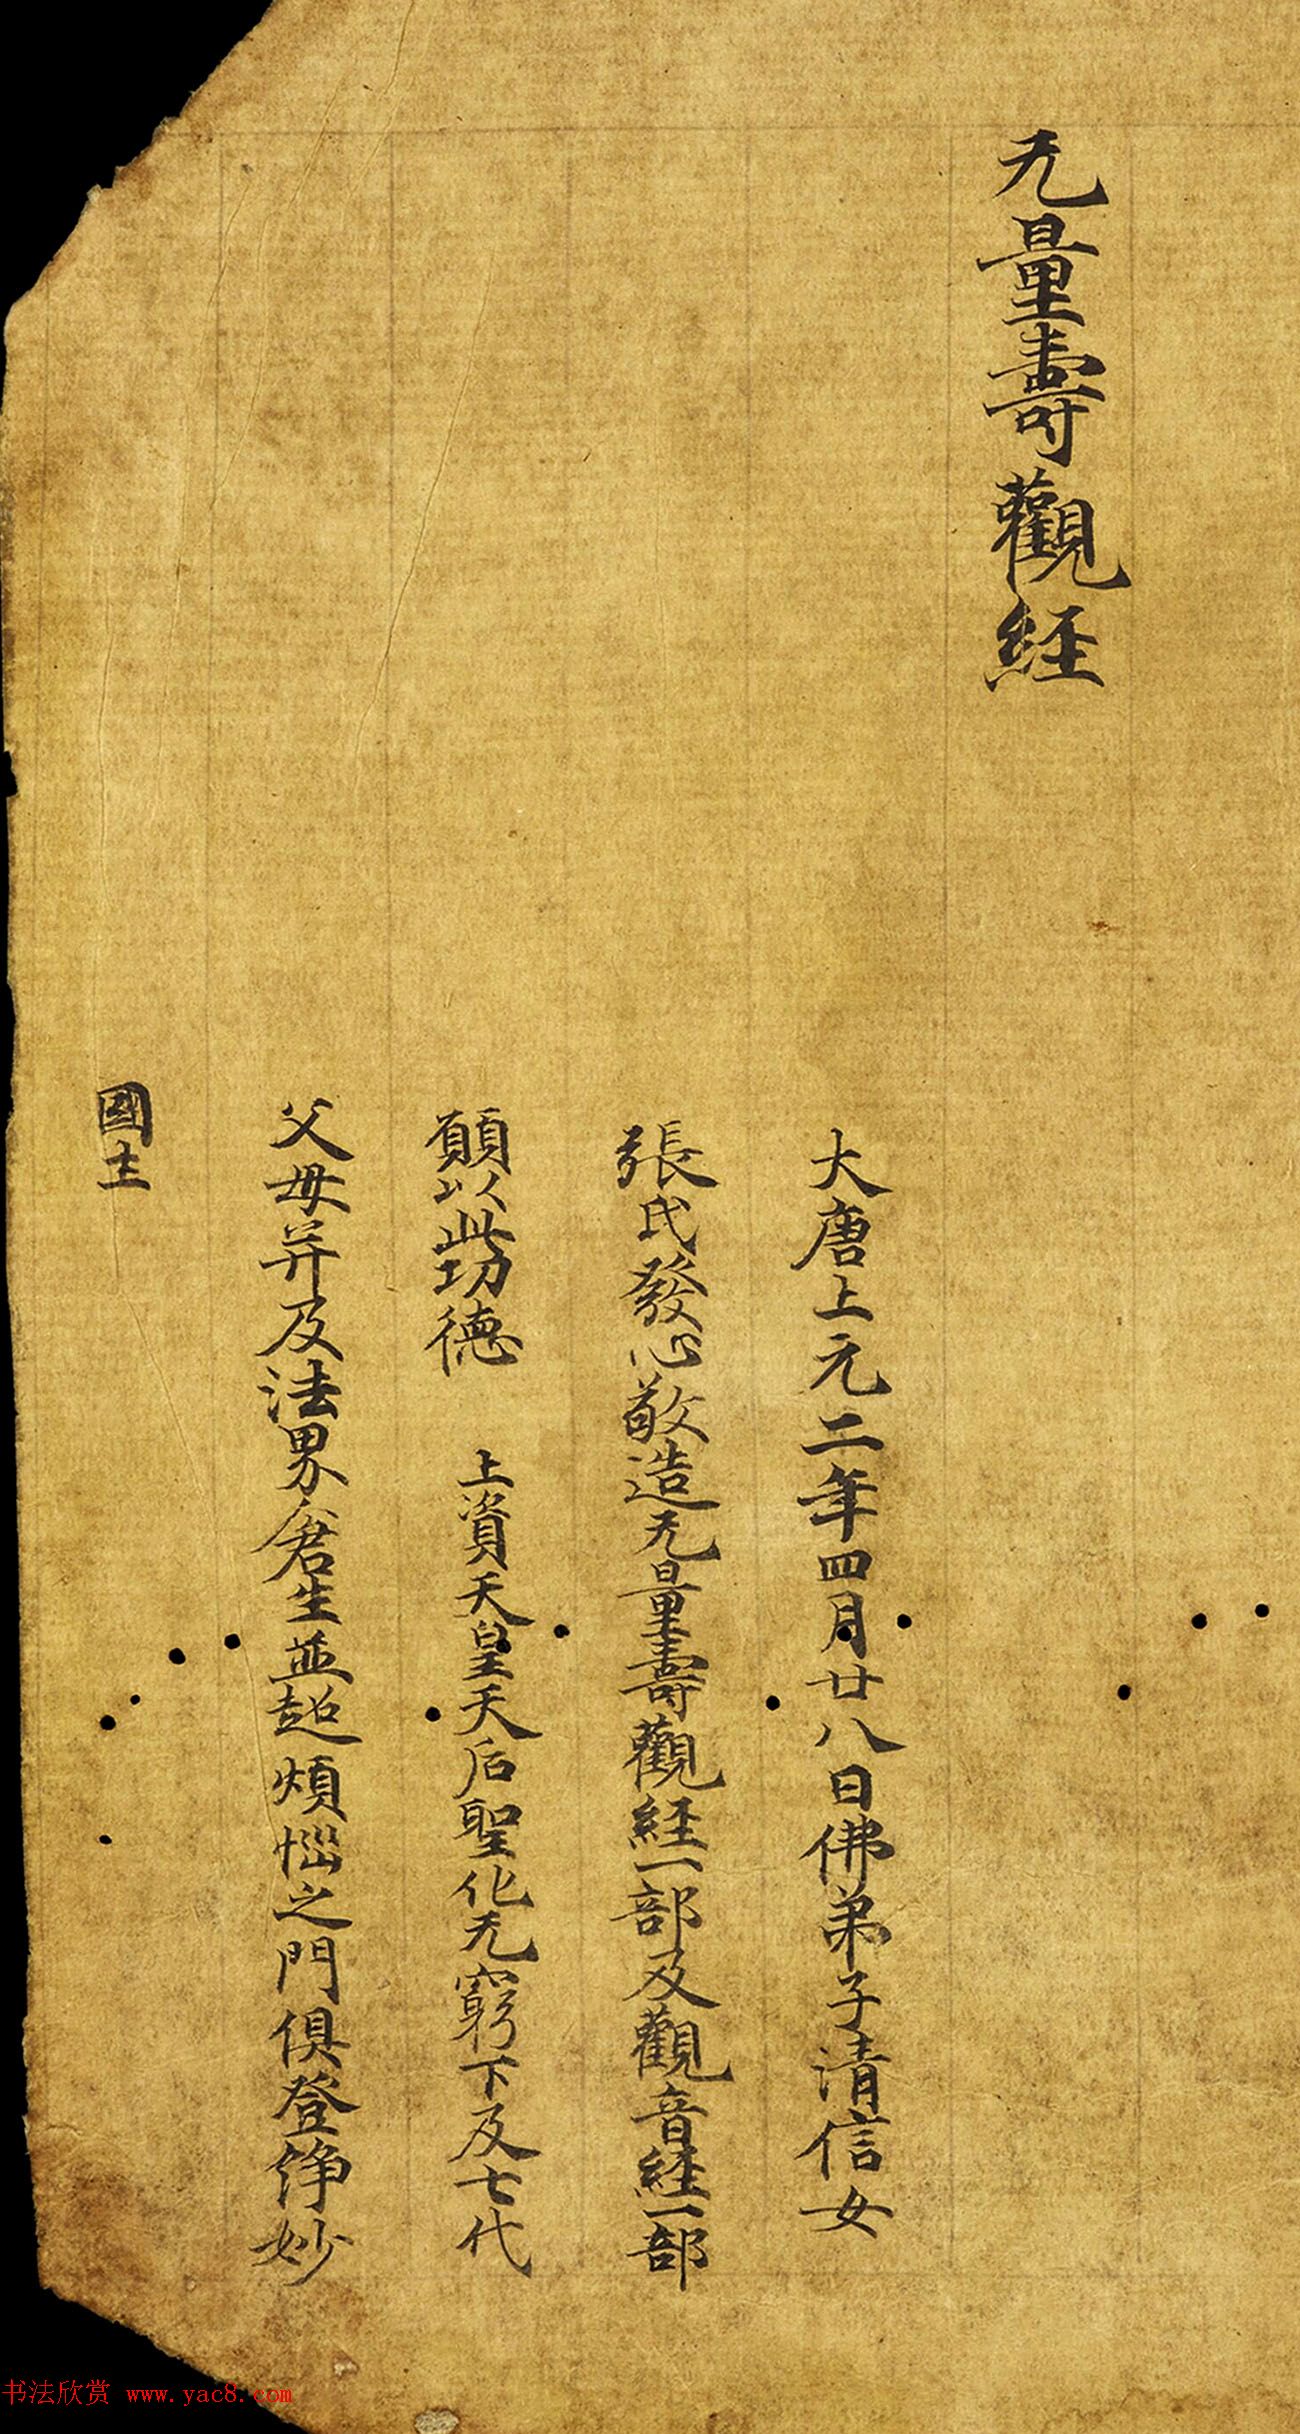 无量壽觀經
大唐上元二年四月廿八日佛弟子清信女
張氏發心敬造无量壽觀經一部及觀音經一部
願以此功德 上資天皇天后聖化无窮下及七代
父母并及法界倉生並超煩惱之門俱登淨妙
國土
书法欣赏 www.yac8.com